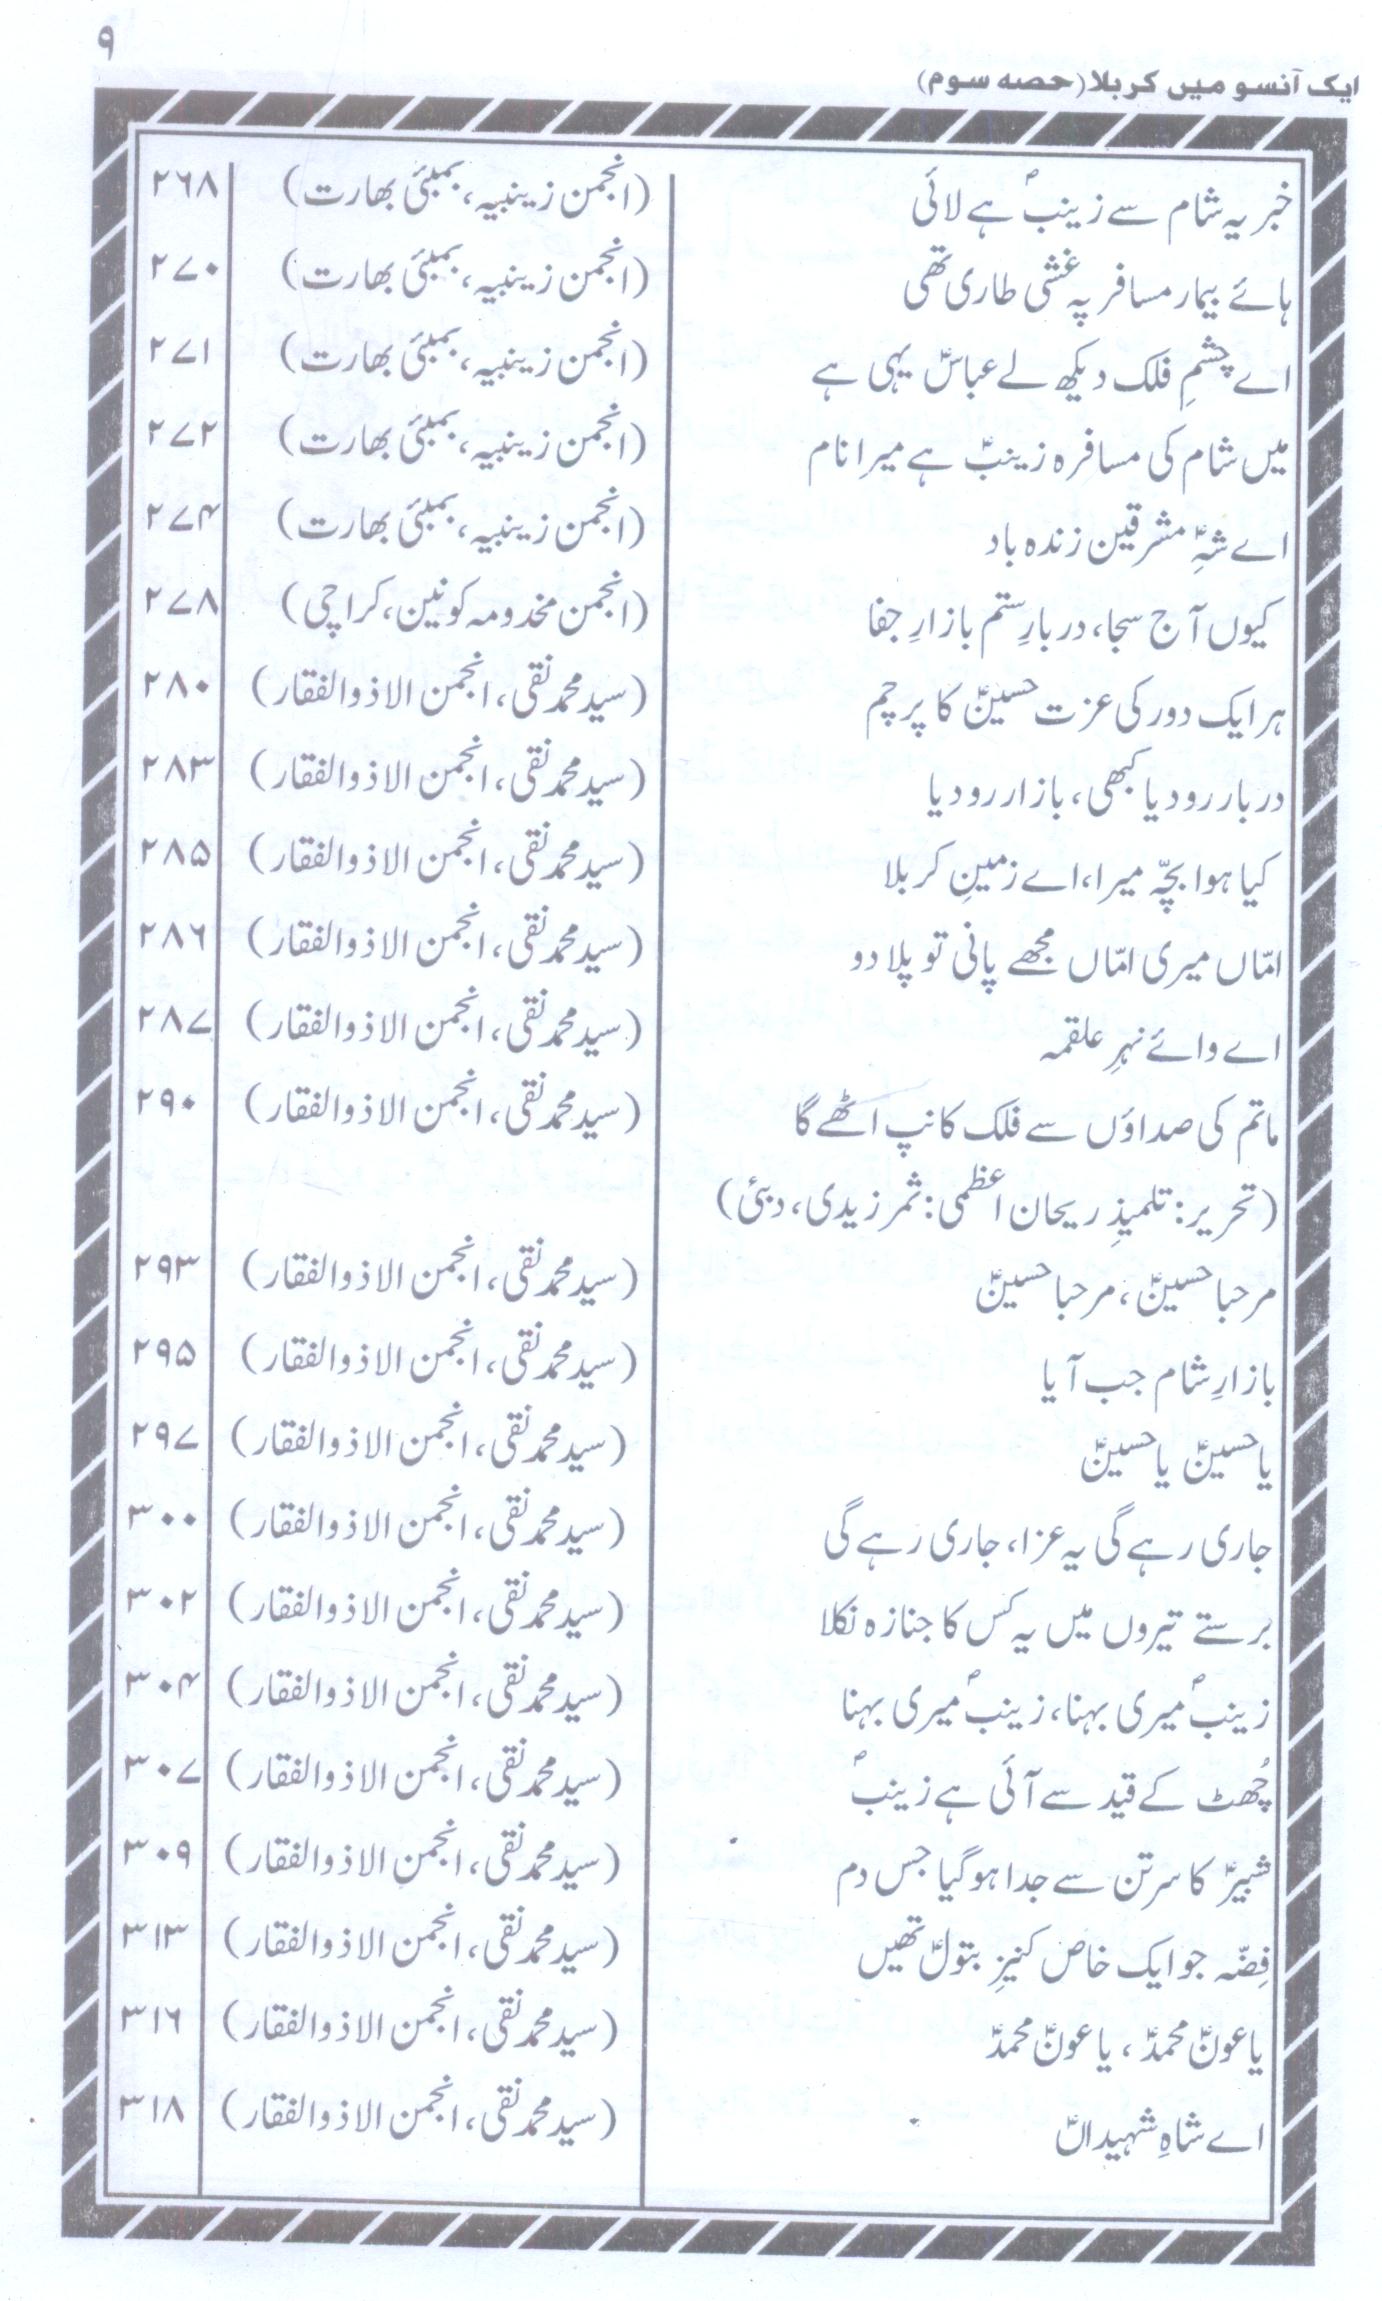 ۹
ایک آنسو میں کربلا (حصہ سوم)
خبر یہ شام سے زینبؑ ہے لائی (انجمن زینبیہ، بمبئی بھارت) ۲۶۸
ہائے بیمار مسافر پہ غشی طاری تھی (انجمن زینبیہ، بمبئی بھارت) ۲۷۰
اے چشمِ فلک دیکھ لے عباسؑ یہی ہے (انجمن زینبیہ، بمبئی بھارت) ۲۷۱
میں شام کی مسافرہ زینبؑ ہے میرا نام (انجمن زینبیہ، بمبئی بھارت) ۲۷۲
اے شہِؑ مشرقین زندہ باد (انجمن زینبیہ، بمبئی بھارت) ۲۷۴
کیوں آج سجا، دربارِ ستم بازارِ جفا (انجمن مخدومہ کونین، کراچی) ۲۷۸
ہر ایک دور کی عزت حسینؑ کا پرچم (سید محمد نقی، انجمن الاذوالفقار) ۲۸۰
دربار رو دیا کبھی، بازار رو دیا (سید محمد نقی، انجمن الاذوالفقار) ۲۸۳
کیا ہوا بچّہ میرا، اے زمینِ کربلا (سید محمد نقی، انجمن الاذوالفقار) ۲۸۵
امّاں میری امّاں مجھے پانی تو پلا دو (سید محمد نقی، انجمن الاذوالفقار) ۲۸۶
اے وائے نہرِ علقمہ (سید محمد نقی، انجمن الاذوالفقار) ۲۸۷
ماتم کی صداؤں سے فلک کانپ اٹھے گا (سید محمد نقی، انجمن الاذوالفقار) ۲۹۰
(تحریر: تلمیذِ ریحان اعظمی: ثمر زیدی، دبئی)
مرحبا حسینؑ، مرحبا حسینؑ (سید محمد نقی، انجمن الاذوالفقار) ۲۹۳
بازارِ شام جب آیا (سید محمد نقی، انجمن الاذوالفقار) ۲۹۵
یا حسینؑ یا حسینؑ (سید محمد نقی، انجمن الاذوالفقار) ۲۹۷
جاری رہے گی یہ عزا، جاری رہے گی (سید محمد نقی، انجمن الاذوالفقار) ۳۰۰
برستے تیروں میں یہ کس کا جنازہ نکلا (سید محمد نقی، انجمن الاذوالفقار) ۳۰۲
زینبؑ میری بہنا، زینبؑ میری بہنا (سید محمد نقی، انجمن الاذوالفقار) ۳۰۴
چُھٹ کے قید سے آئی ہے زینبؑ (سید محمد نقی، انجمن الاذوالفقار) ۳۰۷
شبیرؑ کا سر تن سے جدا ہو گیا جس دم (سید محمد نقی، انجمن الاذوالفقار) ۳۰۹
فِضّہ جو ایک خاص کنیزِ بتولؑ تھیں (سید محمد نقی، انجمن الاذوالفقار) ۳۱۳
یا عونؑ محمدؑ، یا عونؑ محمدؑ (سید محمد نقی، انجمن الاذوالفقار) ۳۱۶
اے شاہِ شہیداںؑ (سید محمد نقی، انجمن الاذوالفقار) ۳۱۸